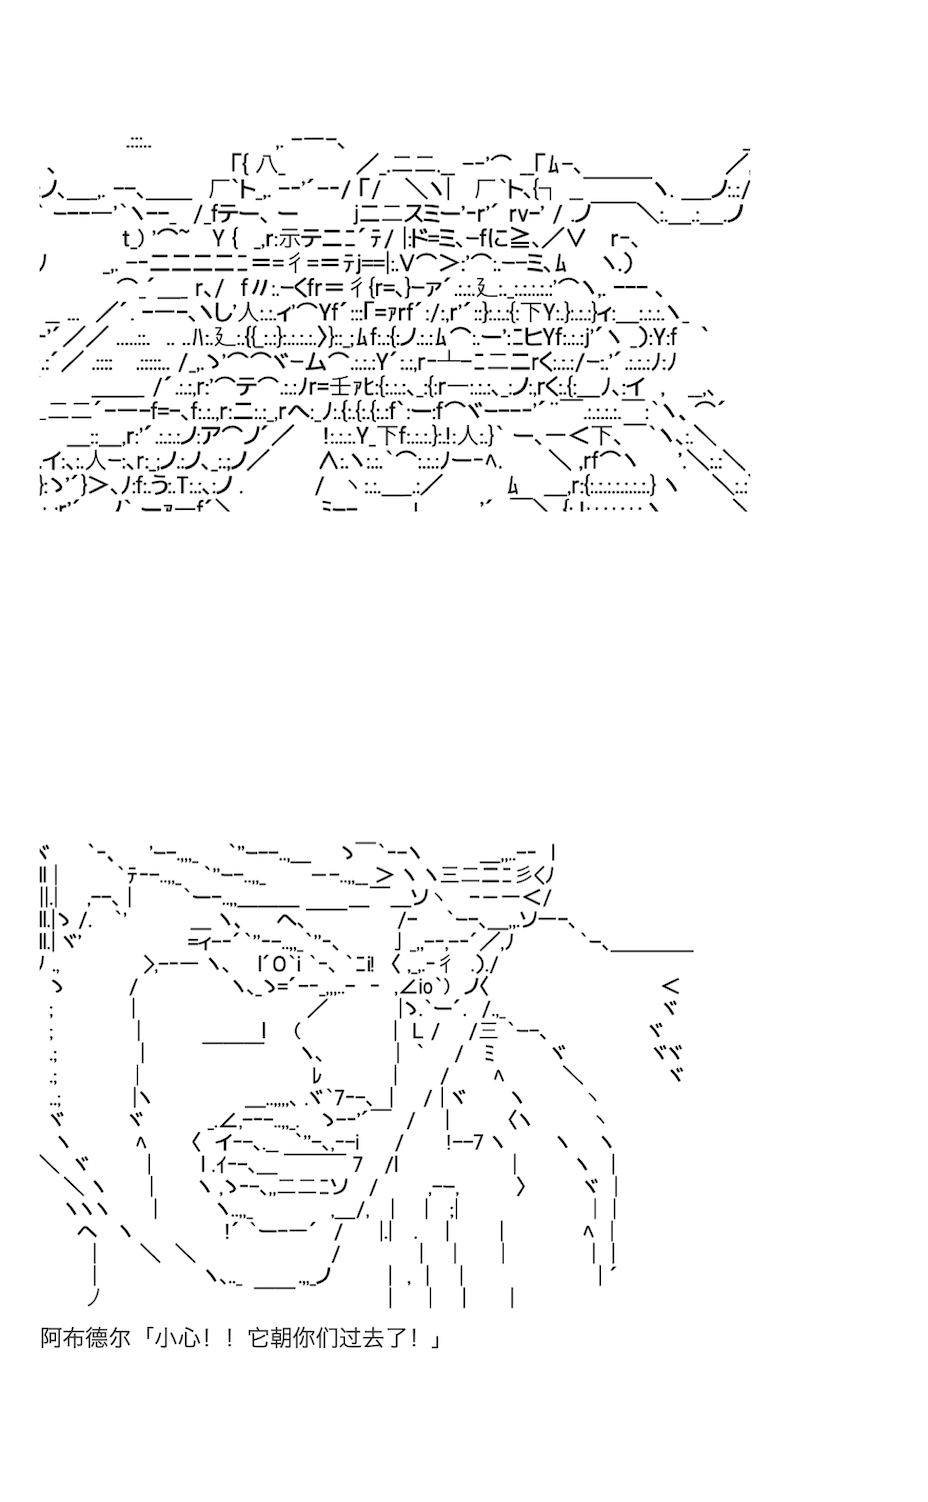 阿布德尔「小心！！它朝你们过去了！」